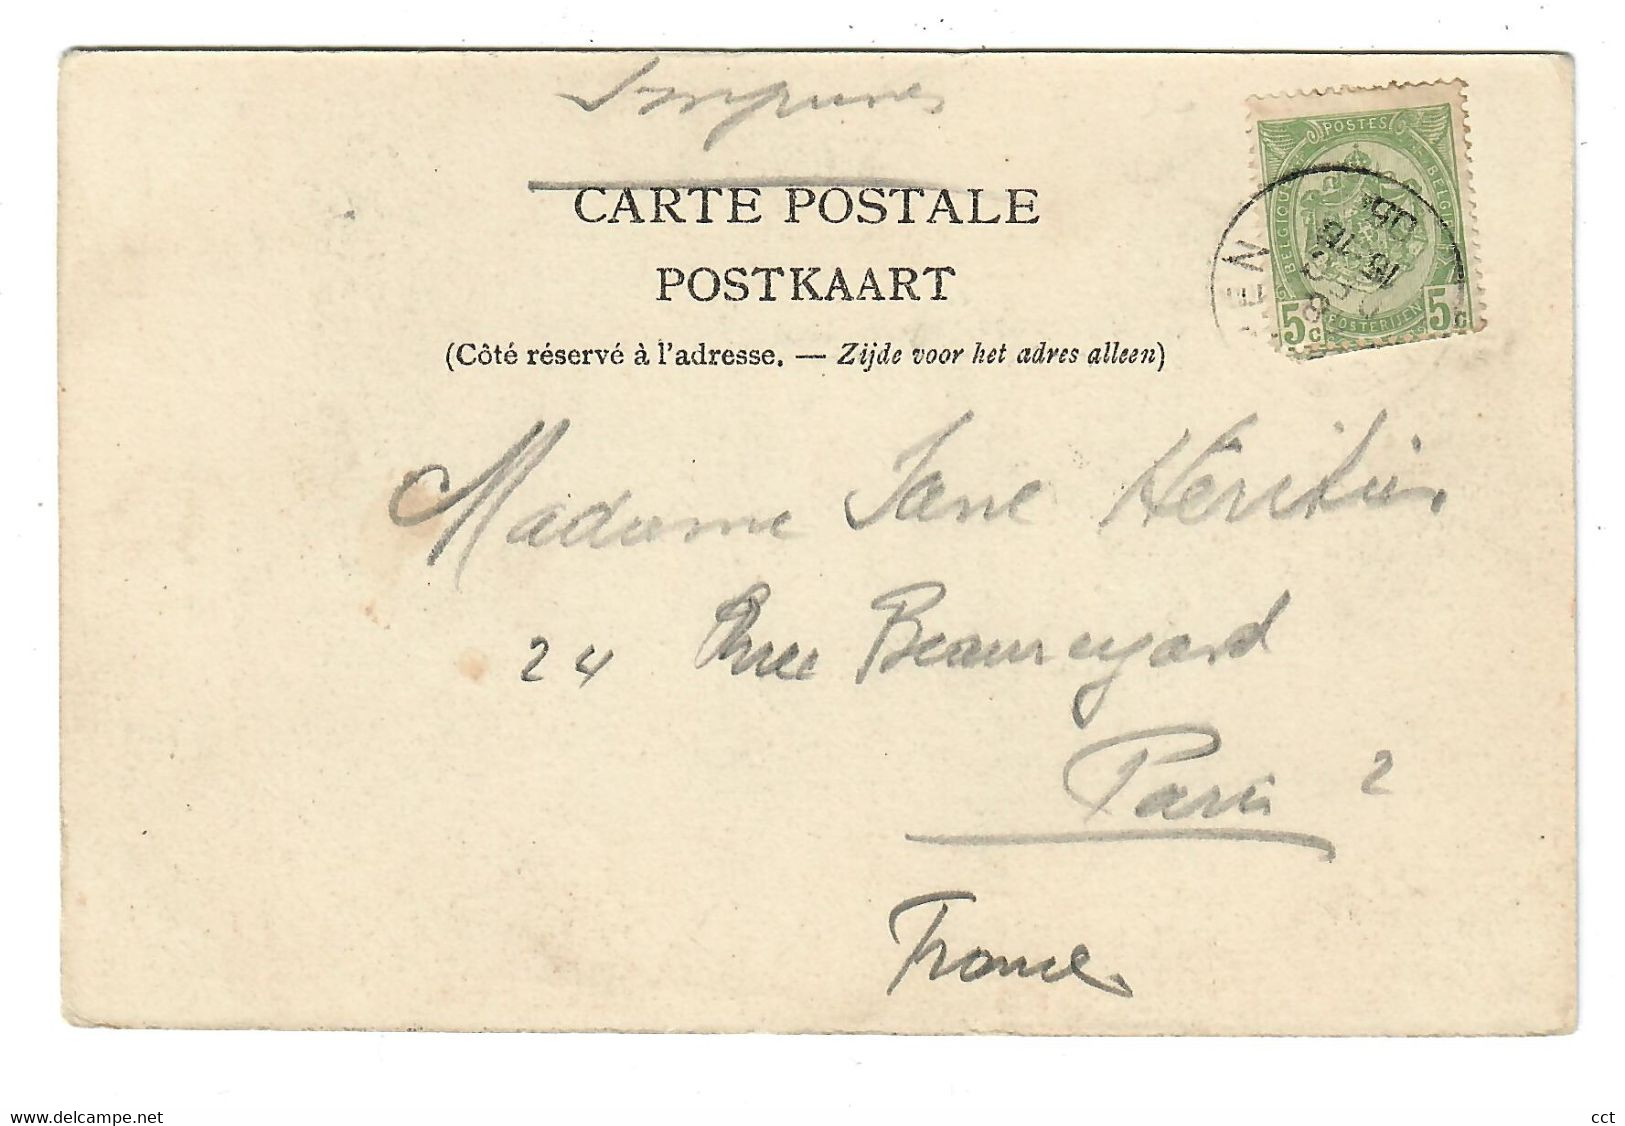 Imprimés
CARTE POSTALE
POSTKAART
(Côté réservé à l'adresse. — Zijde voor het adres alleen)
POSTES
BELGIQUE
BELGIË
POSTERIJEN
5c 5c
EN
8
15-16
05
Madame Jane Héritier
24 Rue Beauregard
Paris 2
France
www.delcampe.net
cct